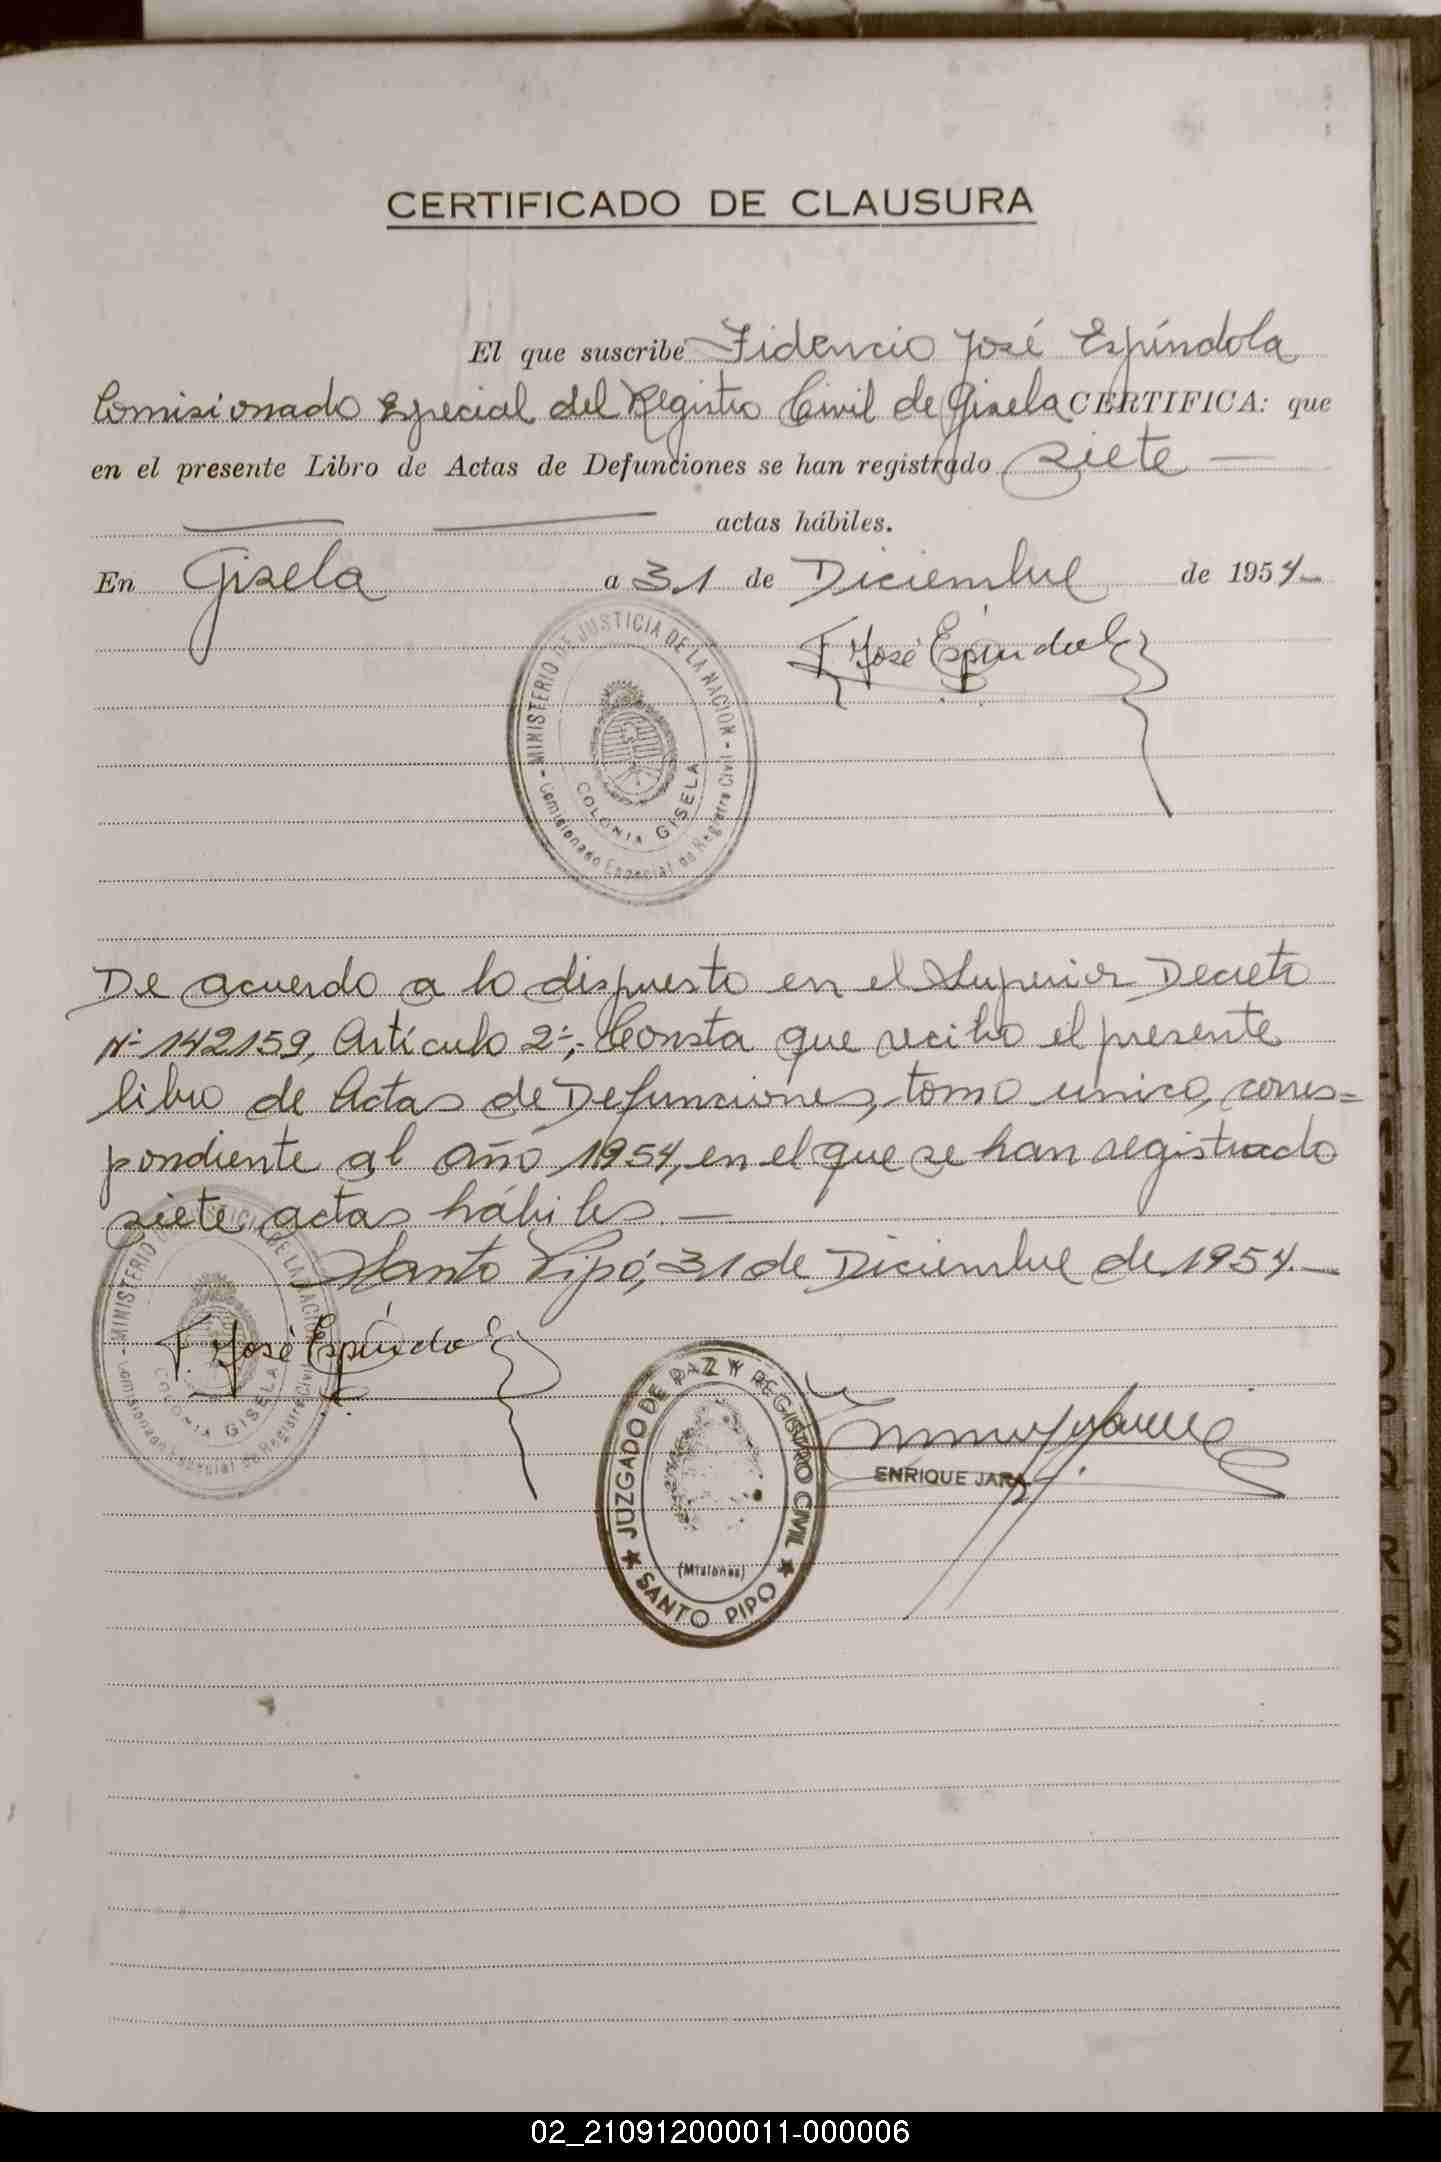 CERTIFICADO DE CLAUSURA
El que suscribe Fidencio José Espíndola
Comisionado Especial del Registro Civil de Gisela CERTIFICA: que
en el presente Libro de Actas de Defunciones se han registrado siete
actas hábiles.
En Gisela a 31 de Diciembre de 1954.
F. José Espíndola
MINISTERIO DE JUSTICIA DE LA NACION
Comisionado Especial de Registro Civil
COLONIA GISELA
De acuerdo a lo dispuesto en el Superior Decreto
Nº 142159, Artículo 2º, Consta que recibo el presente
libro de Actas de Defunciones, tomo unico, corres=
pondiente al año 1954, en el que se han registrado
siete actas hábiles. —
Santo Pipó, 31 de Diciembre de 1954. —
MINISTERIO DE JUSTICIA DE LA NACION
Comisionado Especial de Registro Civil
COLONIA GISELA
F. José Espíndola
JUZGADO DE PAZ Y REGISTRO CIVIL
(Misiones)
SANTO PIPO
ENRIQUE JARA
R
S
T
U
V
W
X
Y
Z
02_210912000011-000006